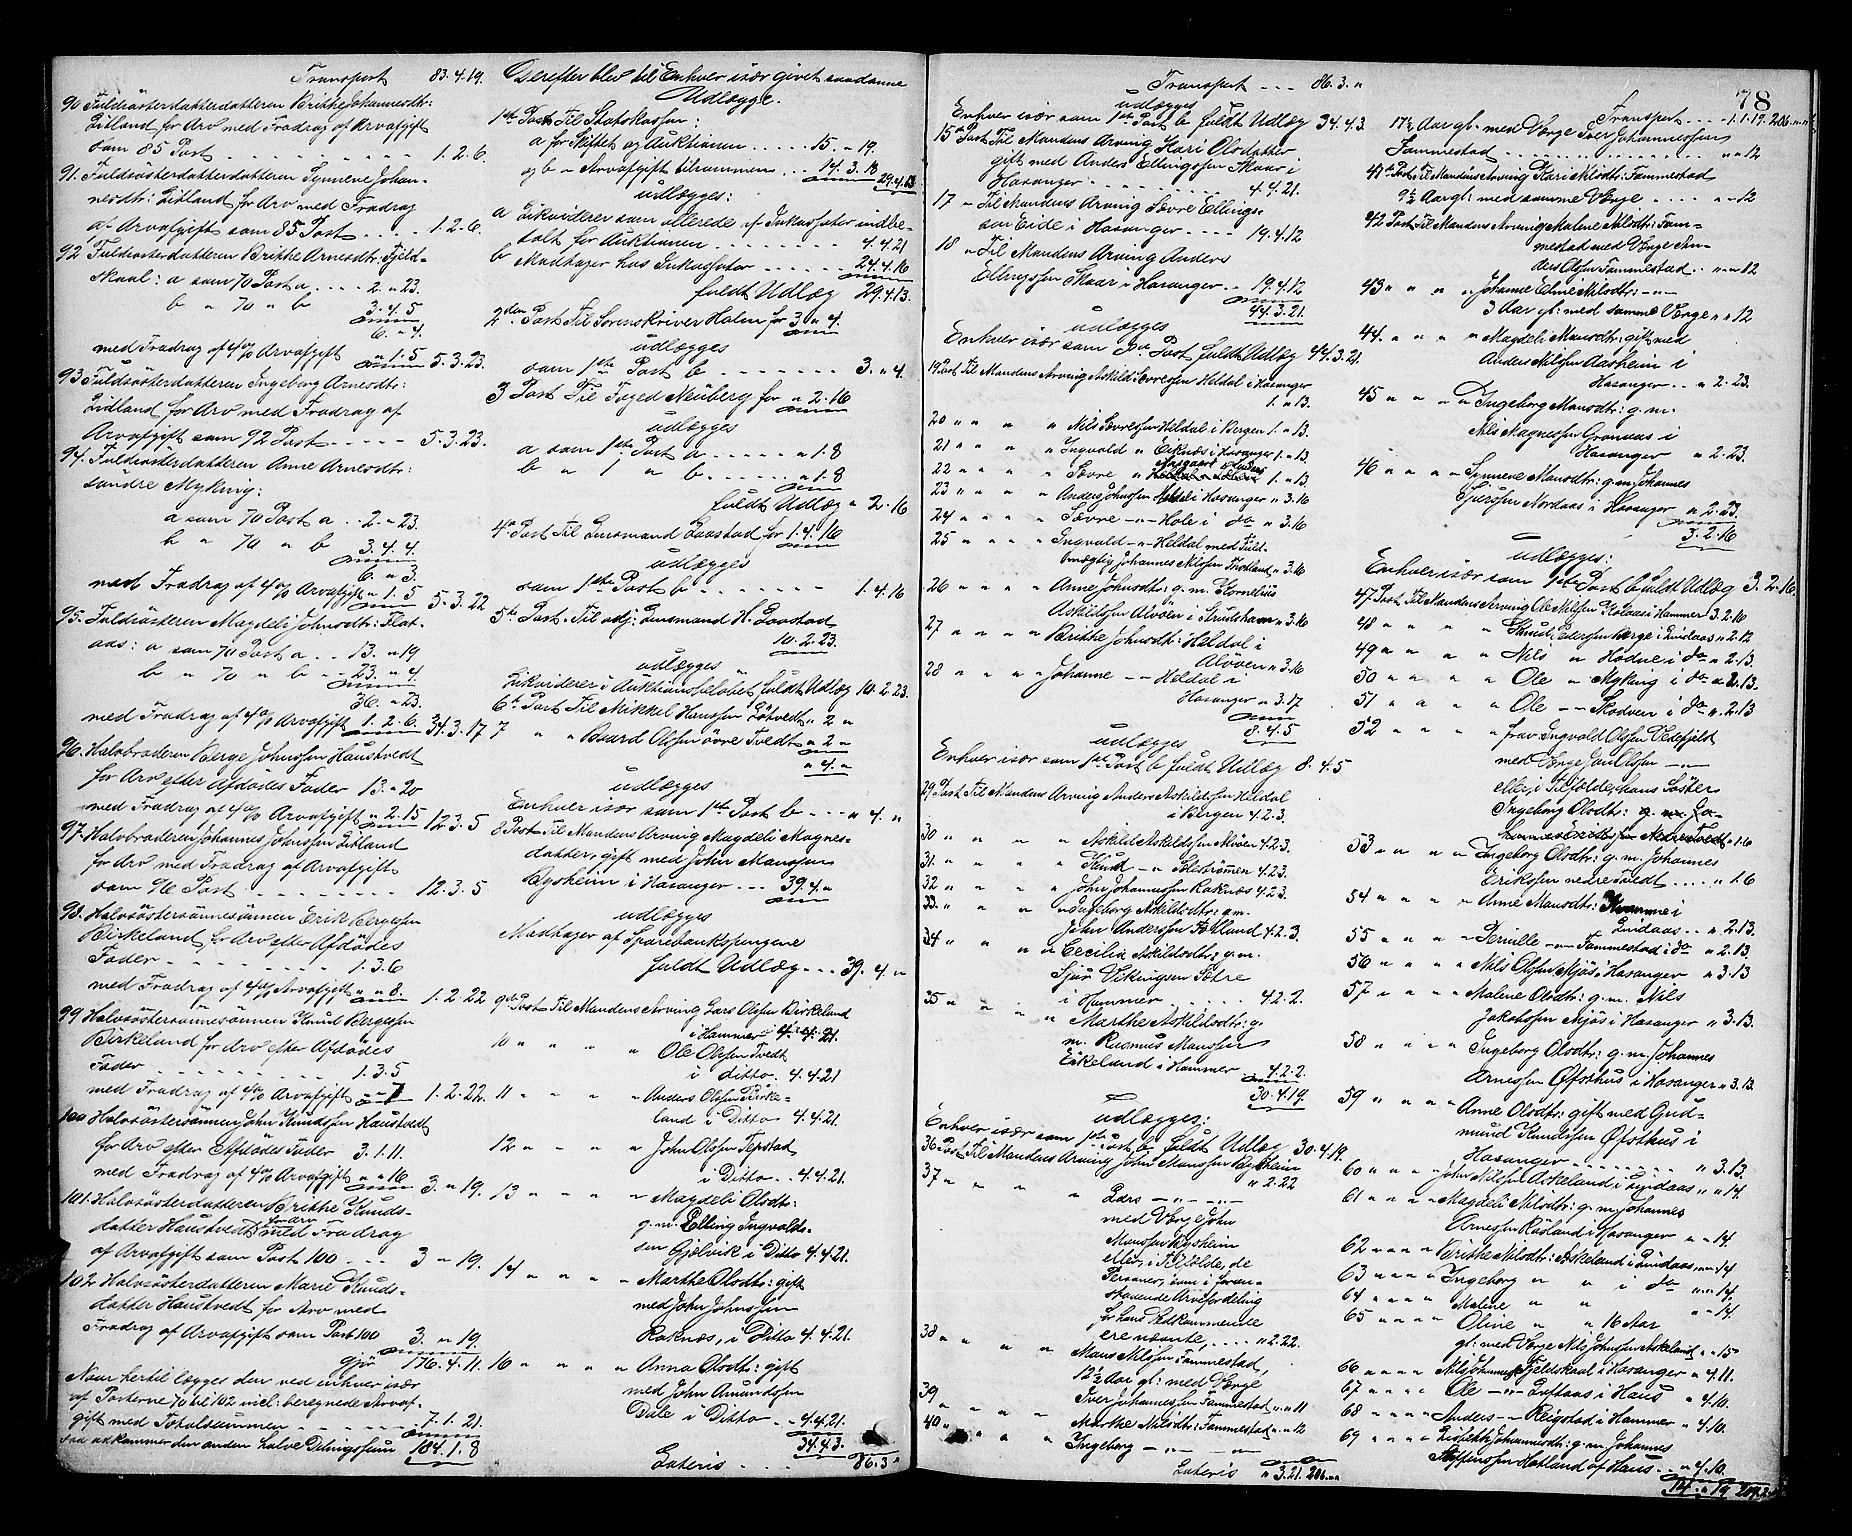 Transport 83.4.19.
90 Fuldsösterdatterdatteren Brithe Johannesdtr:
Litland for Arv med Fradrag af Arvafgift
som 85 Post 1.2.6.
91. Fuldsösterdatterdatteren Synneve Johan-
nesdtr: Litland for Arv med Fradrag
af Arvafgift som 85 Post 1.2.6.
92 Fuldsösterdatteren Brithe Arnesdtr: Fjeld-
skaal: a som 70 Post a 2.„23.
b „ 70 „ b 3.4.5
6.„4.
med Fradrag af 4% Arvafgift „1.5 5.3.23.
93 Fuldsösterdatteren Ingeborg Arnesdtr:
Litland for Arv med Fradrag af
Arvafgift som 92 Post 5.3.23.
94. Fuldsösterdatteren Anne Arnesdtr:
søndre Myking:
a som 70 Post a 2.„23.
b „ 70 „ b 3.4.4.
6.„3.
med Fradrag af 4% Arvafgift „1.5 5.3.22
95. Fuldsösteren Magdeli Johnsdtr: Flat-
aas: a som 70 Post a 13.„19
b „ 70 „ b 23.„4
36.„23.
med Fradrag af 4% Arvafgift 1.2.6. 34.3.17
96. Halvbroderen Berge Johnssen Haustvedt
for Arv efter Afdødes Fader 13.„20
med Fradrag af 4% Arvafgift „2.15 12.3.5
97. Halvbroderen Johannes Johnssen Litland
for Arv med Fradrag af Arvafgift
som 96 Post 12.3.5
98. Halvsöstersönnesönnen Erik Bergesen
Birkeland for Arv efter Afdødes
Fader 1.3.6
med Fradrag af 4% Arvafgift „„8. 1.2.22
99 Halvsöstersönnesönnen Knud Bergesen
Birkeland for Arv efter Afdødes
Fader 1.3.5
med Fradrag af 4% Arvafgift „„7 1.2.22.
100 Halvsöstersönnen John Knudssen Haustvedt
for Arv efter Afdødes Fader 3.1.11.
med Fradrag af 4% Arvafgift „„16 3.„19.
101. Halvsösterdatteren Brithe Knuds-
datter Haustvedt for Arv med Fradrag
af Arvafgift som Post 100 3„19.
102. Halvsösterdatteren Marie Knuds-
datter Haustvedt for Arv med
Fradrag af Arvafgift som Post 100 3.„19.
Gjør 176.4.11.
Naar hertil lægges den ved enhver især
af Posterne 70 til 102 incl: beregnede Arvaf-
gift med Totalsummen 7.1.21.
saa udkommer den anden halve Delingssum 184.1.8
Derefter blev til Enhver især givet saadanne
Udlægge.
1ste Post Til Statskassen:
a for Skiftet og Auktionen 15.„19.
og b „ Arvafgift tilsammen 14.3.18 29.4.13
udlægges:
a Likviderer som allerede af Inkassator indbe-
talt for Auktionen 4.4.21
b Modtager hos Inkassator 24.4.16
fuldt Udlæg 29.4.13.
2den Post Til Sorenskriver Holm for 3„4.
udlægges
som 1ste Post b 3.„4.
3 Post Til Foged Neuberg for „2.16
udlægges
a som 1ste Post a „1.8
b „ 1 „ b „1.8
fuldt Udlæg „2.16
4de Post Til Lensmand Laastad for 1.4.16
udlægges
som 1ste Post b 1.4.16
5te Post. Til adj: Lensmand H. Laastad
10.2.23.
udlægges
Likviderer i Auktionsbeløbet fuldt Udlæg 10.2.23.
6te Post Til Mikkel Hanssen Götvedt „2„
7 „ „ Baard Olssen övre Tvedt „2„
„4.„
udlægges
Enhver især som 1ste Post b „4.„
8 Post Til Mandens Arving Magdeli Magnes-
datter, gift med John Monssen
Bysheim i Hosanger 39.4.„
udlægges
Modtager af Sparebankspengene
fuldt Udlæg 39.4.„
9de Post Til Mandens Arving Lars Olssen Birkeland
i Hammer 4.4.21.
10 „ „ „ „ Ole Olssen Tvedt
i ditto 4.4.21
11 „ „ „ „ Anders Olssen Birke-
land i Ditto 4.4.21.
12 „ „ „ „ John Olssen Tepstad
i Ditto 4.4.21.
13 „ „ „ „ Magdeli Olsdtr:
g.m. Elling Ingvalds-
sen Gjelvik i Ditto 4.4.21.
14 „ „ „ „ Marthe Olsdtr: gift
med John Johnssen
Roknæs, i Ditto 4.4.21.
16 „ „ „ „ Anna Olsdtr: gift
med John Amundssen
Dale i Ditto 4.4.21.
34.4.3.
Lateris 86.3„
Transport 86.3.„
udlægges
Enhver især som 1ste Post b fuldt Udlæg 34.4.3.
15de Post Til Mandens Arving Kari Olsdatter
gift med Anders Ellingssen Skaar i
Hosanger 4.4.21.
17 „ Til Mandens Arving Sevre Ellings-
sen Eide i Hosanger 19.4.12
18 „ Til Mandens Arving Anders
Ellingssen Skaar i Hosanger 19.4.12
44.3.21.
udlægges
Enhver især som 8de Post fuldt Udlæg 44.3.21.
19de Post Til Mandens Arving Askild Sevresen Heldal i Hosanger
1.„13.
20 „ „ „ Nils Sevressen Heldal i Bergen 1.„13.
21 „ „ „ Ingvald „ Eiknæs i Hosanger 1.„13.
22 „ „ „ Sevre „ 1.„13
23 „ „ „ Anders Johnssen Heldal i Hosanger „3.16
24 „ „ „ Sevre „ Hole i do „3.16
25 „ „ „ Ingvald „ Heldal med Fuld-
mægtig Johannes Nilssen Fristland „3.16
26 „ „ „ Anne Johnsdtr: g.m. Kornelius
Askildssen Alvöen i Strudshavn „3.16
27 „ „ „ Brithe Johnsdtr: Heldal i
Alvöen „3.16
28 „ „ „ Johanne „ Heldal i
Hosanger „3.17
8.4.5
udlægges
Enhver især som 1ste Post b fuldt Udlæg 8.4.5
29 Post Til Mandens Arving Anders Askildssen Heldal
i Bergen 4.2.3.
30 „ „ „ Askild Askildssen Alvöen 4.2.3.
31. „ „ „ Knud „ Solströmen 4.2.3.
32 „ „ „ John Johannessen Roknæs 4.2.3.
33. „ „ „ Ingeborg Askildsdtr: g.m.
John Anderssen Fotland 4.2.3.
34 „ „ „ Cecilia Askildsdtr: g.m.
Sjur Vikingsen Sætre
i Hammer 4.2.2.
35 „ „ „ Marthe Askildsdtr: g.
m. Rasmus Monssen
Eikeland i Hammer 4.2.2.
30.4.19.
udlægges:
Enhver især som 1ste Post b fuldt Udlæg 30.4.19.
36 Post Til Mandens Arving John Monssen Bysheim
„2.22
37 „ „ „ Lars „
med Værge John
Monssen Bysheim
eller, i Tilfælde, de
Personer, som i foran-
staaende Arvefordeling
for hans Vedkommende
ere nævnte, „2.22.
38 „ „ „ Mons Nilssen Tammestad,
12½ Aar gl: med Værge
Iver Johannessen Tammestad „„11
39 „ „ „ Marthe Nilsdtr: Tammestad „„12
40 „ „ „ Ingeborg „
Lateris „3.21. 206.„„
78
Transport 1.1.19. 206.„„
17½ Aar gl: med Værge Iver Johannessen
Tammestad „„12
41de Post Til Mandens Arving Kari Nilsdtr: Tammestad
9½ Aar gl: med samme Værge „„12
42 Post Til Mandens Arving Malene Nilsdtr: Tam-
mestad med Værge An-
ders Olssen Tammestad „„12
43 „ „ „ Johanne Oline Nilsdtr: „
3 Aar gl: med samme Værge „„12
44. „ „ „ Magdeli Monsdtr: gift med
Anders Nilssen Aasheim i
Hosanger „2.23.
45 „ „ „ Ingeborg Monsdtr: g.m.
Nils Magnessen Granaas i
Hosanger „2.23.
46 „ „ „ Synneve Monsdtr: g.m. Johannes
Sjurssen Nordaas i Hosanger „2.23.
3.2.16
udlægges:
Enhver især som 1ste Post b fuldt Udlæg 3.2.16.
47 Post Til Mandens Arving Ole Nilssen Kolaas i Hammer 3.2.16
48 „ „ „ Knud Pederssen Berge i Lindaas „2.12
49 „ „ „ Nils „ Hodne i do „2.13.
50 „ „ „ Ole „ Myking i do „2.13.
51 „ „ „ Ole „ Skodven i do „2.13
52 „ „ „ frav: Ingvald Olssen Vedefjeld
med Værge Paul Olssen „
eller i Tilfælde, hans Söster
Ingeborg Olsdtr:
Nedre Tvedt „1.6
53 „ „ „ Ingeborg Olsdtr: g.m. Johannes
Erikssen nedre Tvedt „1.6
54 „ „ „ Anne Monsdtr: Kvamme i
Lindaas „2.13.
55 „ „ „ Pernille „ Tammestad i do „2.13.
56 „ „ „ Nils Olssen Mjös i Hosanger „3.13
57 „ „ „ Malene Olsdtr: g.m. Nils
Jakobssen Mjös i Hosanger „3.13.
58 „ „ „ Ingeborg Olsdtr: g.m. Johannes
Arnessen Øfsthus i Hosanger „3.13.
59 „ „ „ Anne Olsdtr: gift med Gud-
mund Knudssen Øfsthus i
Hosanger „3.13.
60 „ „ „ John Nilssen Askeland i Lindaas „„14.
61 „ „ „ Magdeli Nilsdtr: g.m. Johannes
Arnessen Rösland i Hosanger „„14.
62 „ „ „ Brithe Nilsdtr: Askeland i Lindaas „„14
63 „ „ „ Ingeborg „ „ i do „„14.
64 „ „ „ Malene „ „ „„14.
65 „ „ „ Oline „ „ 16 Aar
gl: med Værge Nils Johnssen Askeland „„15
66 „ „ „ Nils Johannessen Fjeldskaal i Hosanger „4.11.
67 „ „ „ Ole „ Loftaas i Haus „4.10.
68 „ „ „ Anders „ Reigstad i Hammer „4.10.
69 „ „ „ Lisbeth Johannesdtr: g.m. Johannes
Steffenssen Hotland af Haus „4.10.
14.„19